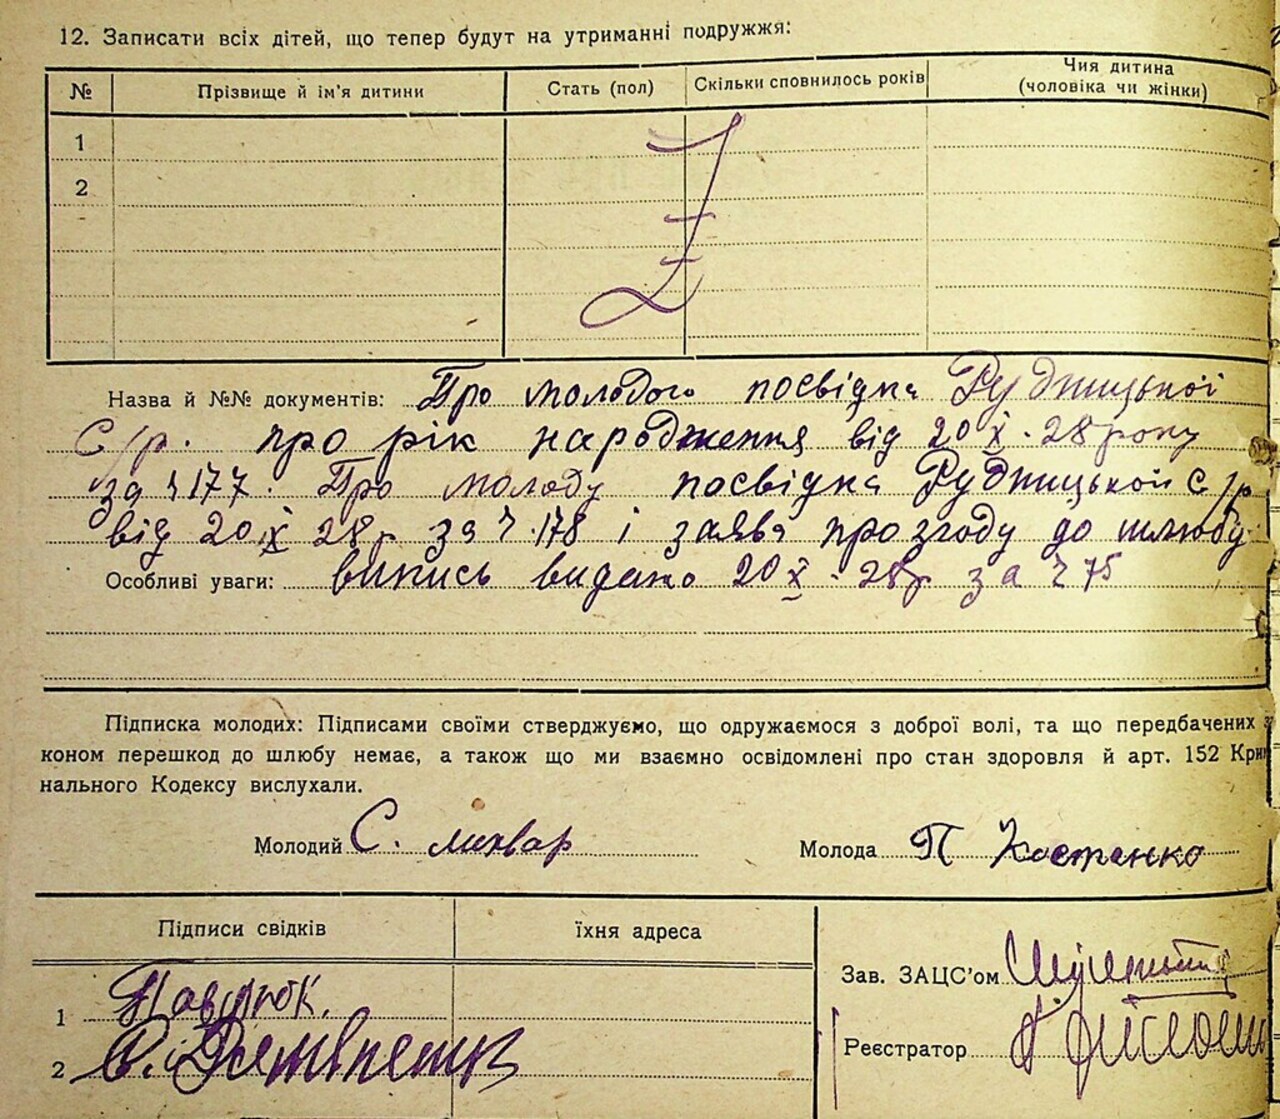 12. Записати всіх дітей, що тепер будут на утриманні подружжя:
№ Прізвище й ім'я дитини Стать (пол) Скільки сповнилось років Чия дитина (чоловіка чи жінки)
1
2
Назва й №№ документів: Про молодого посвідка Рудницької
С/р. про рік народження від 20 X. 28 року
за ч 177. Про молоду посвідка Рудницької С/р
від 20 X 28 р за ч. 178 і заява про згоду до шлюбу
Особливі уваги: випись видано 20 X. 28 р за ч 75
Підписка молодих: Підписами своїми стверджуємо, що одружаємося з доброї волі, та що передбачених з
коном перешкод до шлюбу немає, а також що ми взаємно освідомлені про стан здоровля й арт. 152 Крим
нального Кодексу вислухали.
Молодий С. Лихвар Молода П Костенко
Підписи свідків їхня адреса
Зав. ЗАЦС'ом
1 Павлюк.
2
Реєстратор